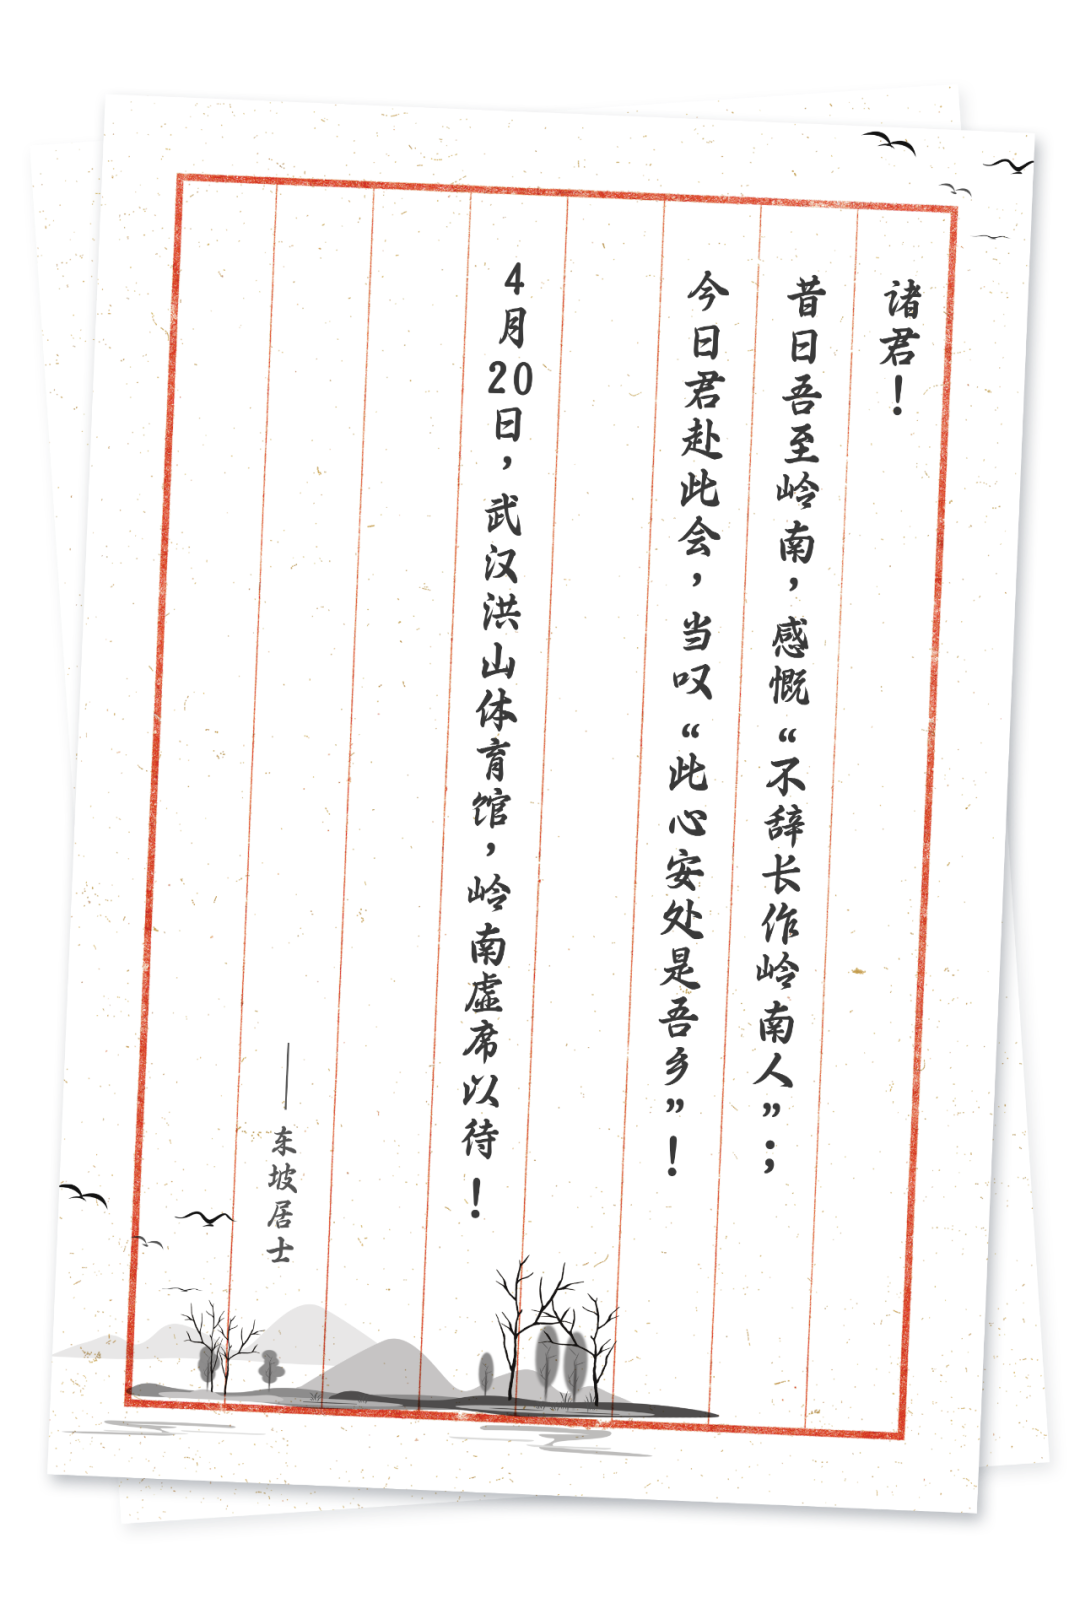 诸君！
昔日吾至岭南，感慨“不辞长作岭南人”；
今日君赴此会，当叹“此心安处是吾乡”！
4月20日，武汉洪山体育馆，岭南虚席以待！
——东坡居士